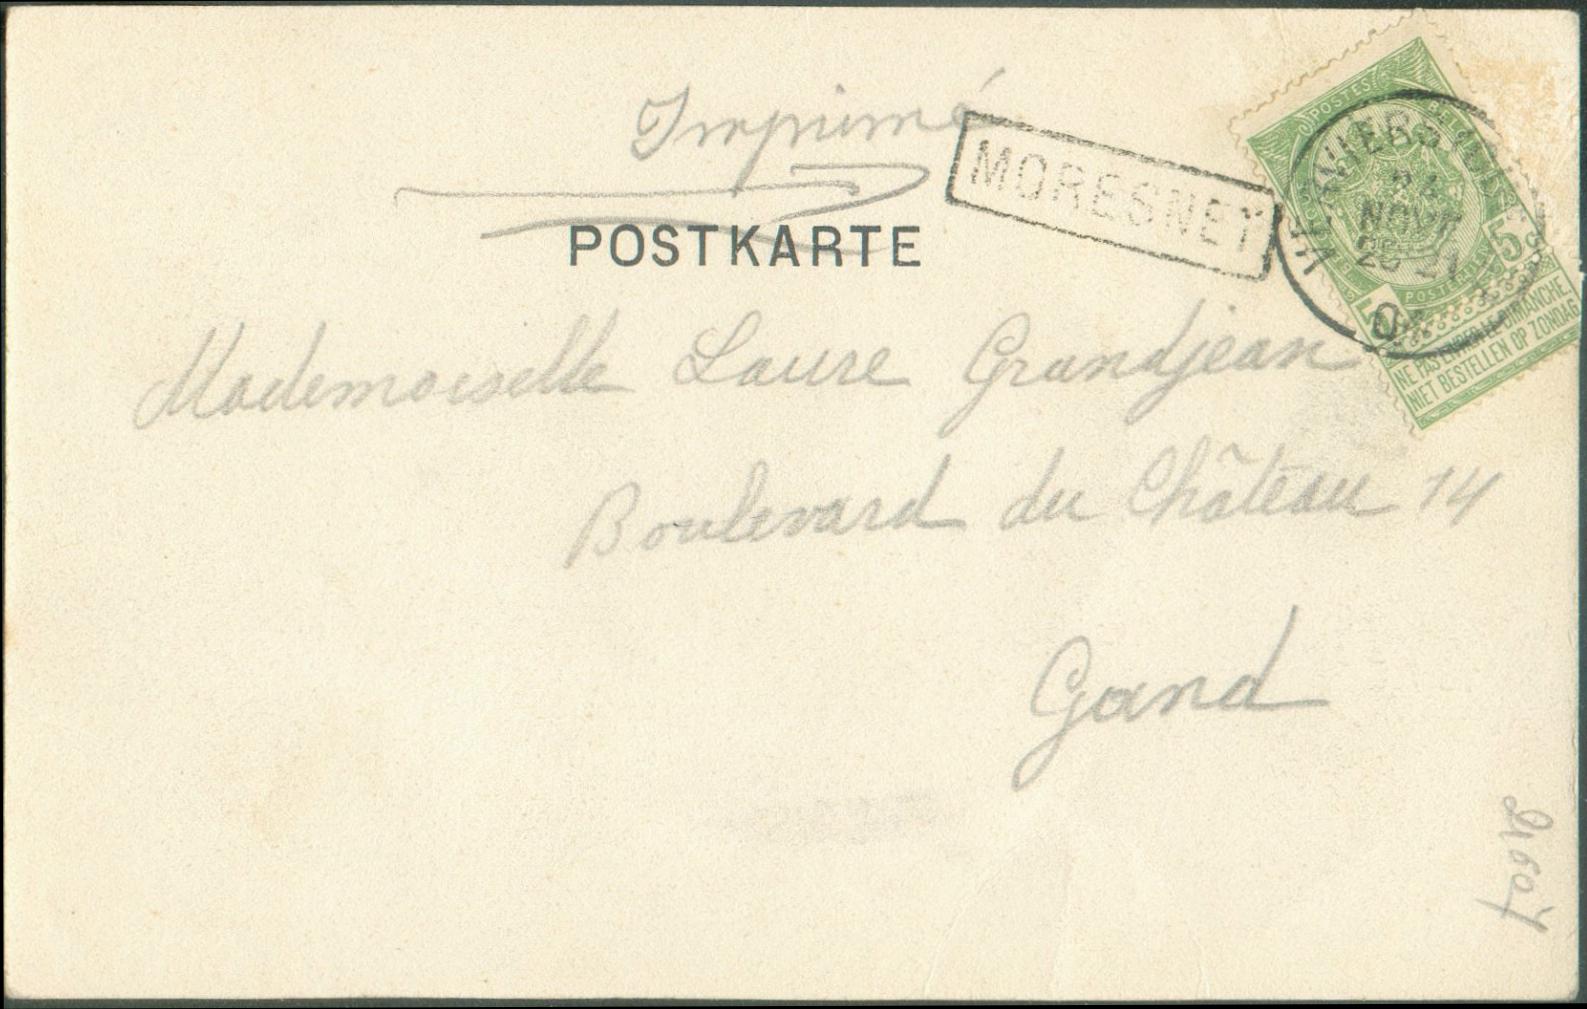 Imprimé
MORESNET
POSTKARTE
POSTES
NOVE
5
5
NE PAS LIVRER LE DIMANCHE
NIET BESTELLEN OP ZONDAG
Mademoiselle Laure Grandjean
Boulevard du Château 14
Gand